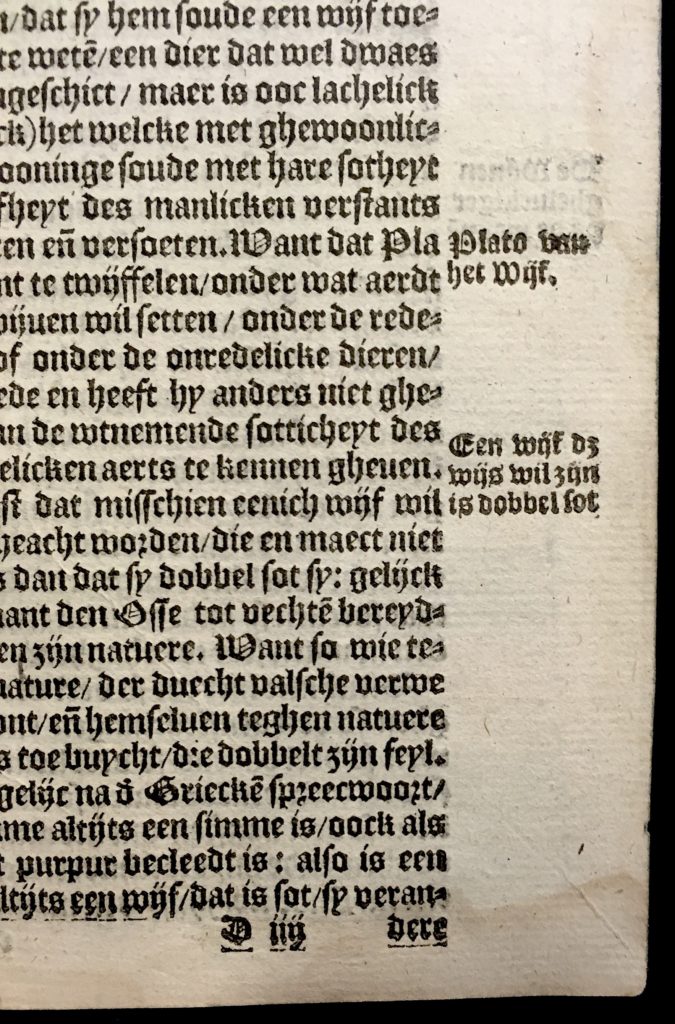 /dat sy hem soude een wijf toe⸗
te wetē/een dier dat wel dwaes
ngeschict / maer is ooc lachelick
ck)het welcke met ghewoonlic⸗
ooninge soude met hare sotheyt
fheyt des manlicken verstants
en eñ versoeten. Want dat Pla
Plato van
nt te twijffelen/onder wat aerdt
het Wijf.
wijuen wil setten / onder de rede⸗
of onder de onredelicke dieren/
ede en heeft hy anders niet ghe⸗
an de wtnemende sotticheyt des
Een wijf dz
elicken aerts te kennen gheuen.
wijs wil zijn
st dat misschien eenich wijf wil
is dobbel sot
heacht worden/die en maect niet
s dan dat sy dobbel sot sy: gelijck
mant den Osse tot vechtē bereyd⸗
en zijn natuere. Want so wie te⸗
nature/ der duecht valsche verwe
ont/eñ hemseluen teghen natuere
s toe buycht/die dobbelt zijn feyl.
gelijc na d̄ Grieckē spreecwoort/
me altijts een simme is/oock als
t purpur becleedt is: also is een
ltijts een wijf/dat is sot/sy veran⸗
D iiij dere